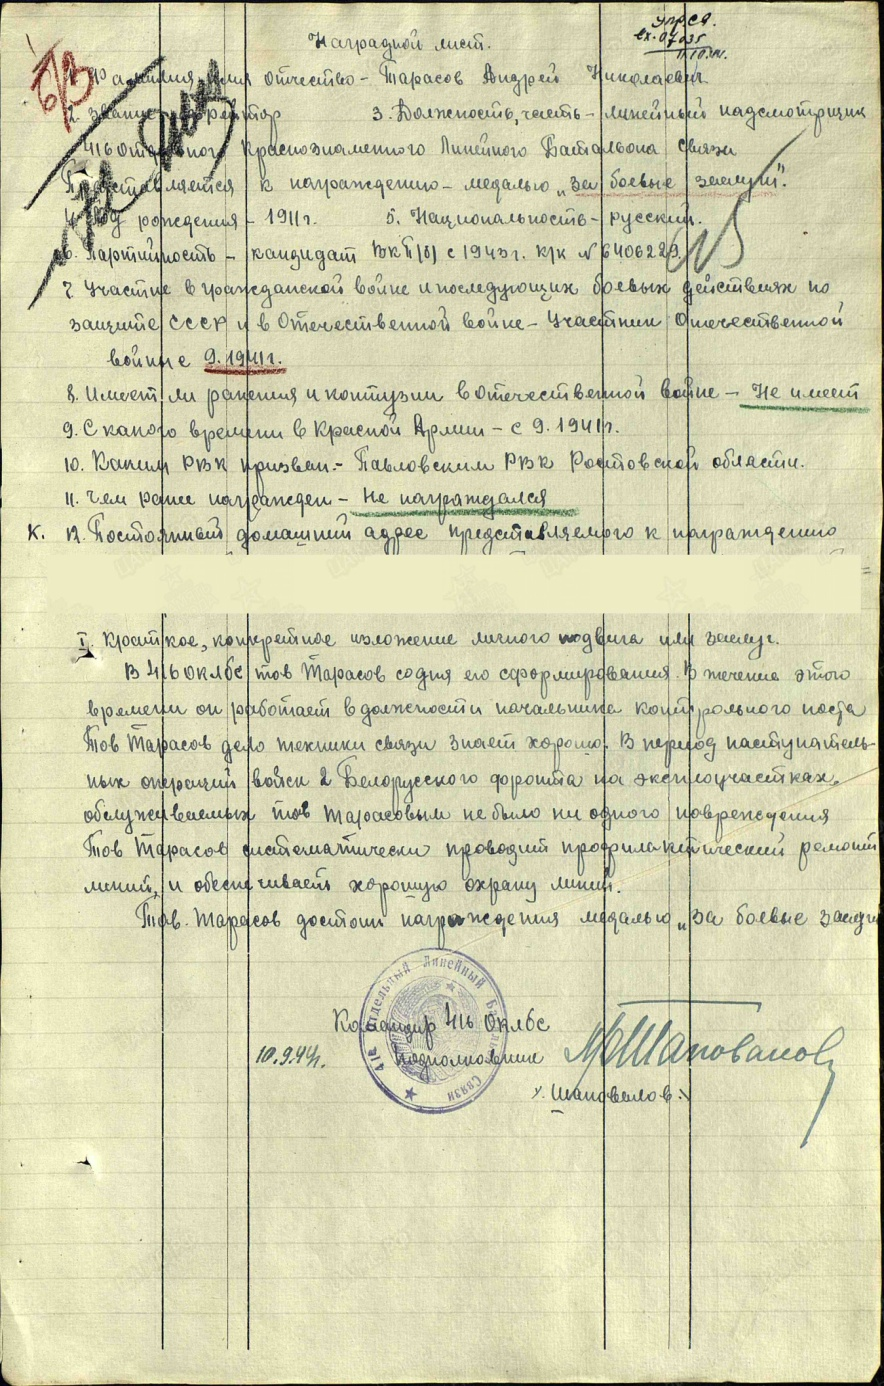 Наградной лист.
1. Фамилия имя отчество – Тарасов Андрей Николаевич
2. Звание – ефрейтор 3. Должность, часть – линейный надсмотрщик
416 Отдельного Краснознаменного Линейного Батальона Связи
Представляется к награждению – медалью „За боевые заслуги".
4. Год рождения – 1911г. 5. Национальность – русский.
6. Партийность – кандидат ВКП(б) с 1943г. к/к №6406229.
7. Участие в гражданской войне и последующих боевых действиях по
защите СССР и в Отечественной войне – Участник Отечественной
войны с 9.1941г.
8. Имеет ли ранения и контузии в Отечественной войне – Не имеет
9. С какого времени в Красной Армии – с 9.1941г.
10. Каким РВК призван – Павловским РВК Ростовской области.
11. Чем ранее награжден – Не награждался
К. 12. Постоянный домашний адрес представляемого к награждению
I. Краткое, конкретное изложение личного подвига или заслуг.
В 416 ОКЛБС тов Тарасов со дня его сформирования. В течение этого
времени он работает в должности начальника контрольного поста
Тов Тарасов дело техники связи знает хорошо. В период наступатель-
ных операций войск 2 Белорусского фронта на эксплоучастках
обслуживаемых тов Тарасовым не было ни одного повреждения
Тов Тарасов систематически проводит профилактический ремонт
линий, и обеспечивает хорошую охрану линий.
Тов. Тарасов достоин награждения медалью „За боевые заслуги
Командир 416 ОКЛБС
10.9.44г. подполковник
/. Шаповалов ./
416 Отдельный Линейный Батальон Связи